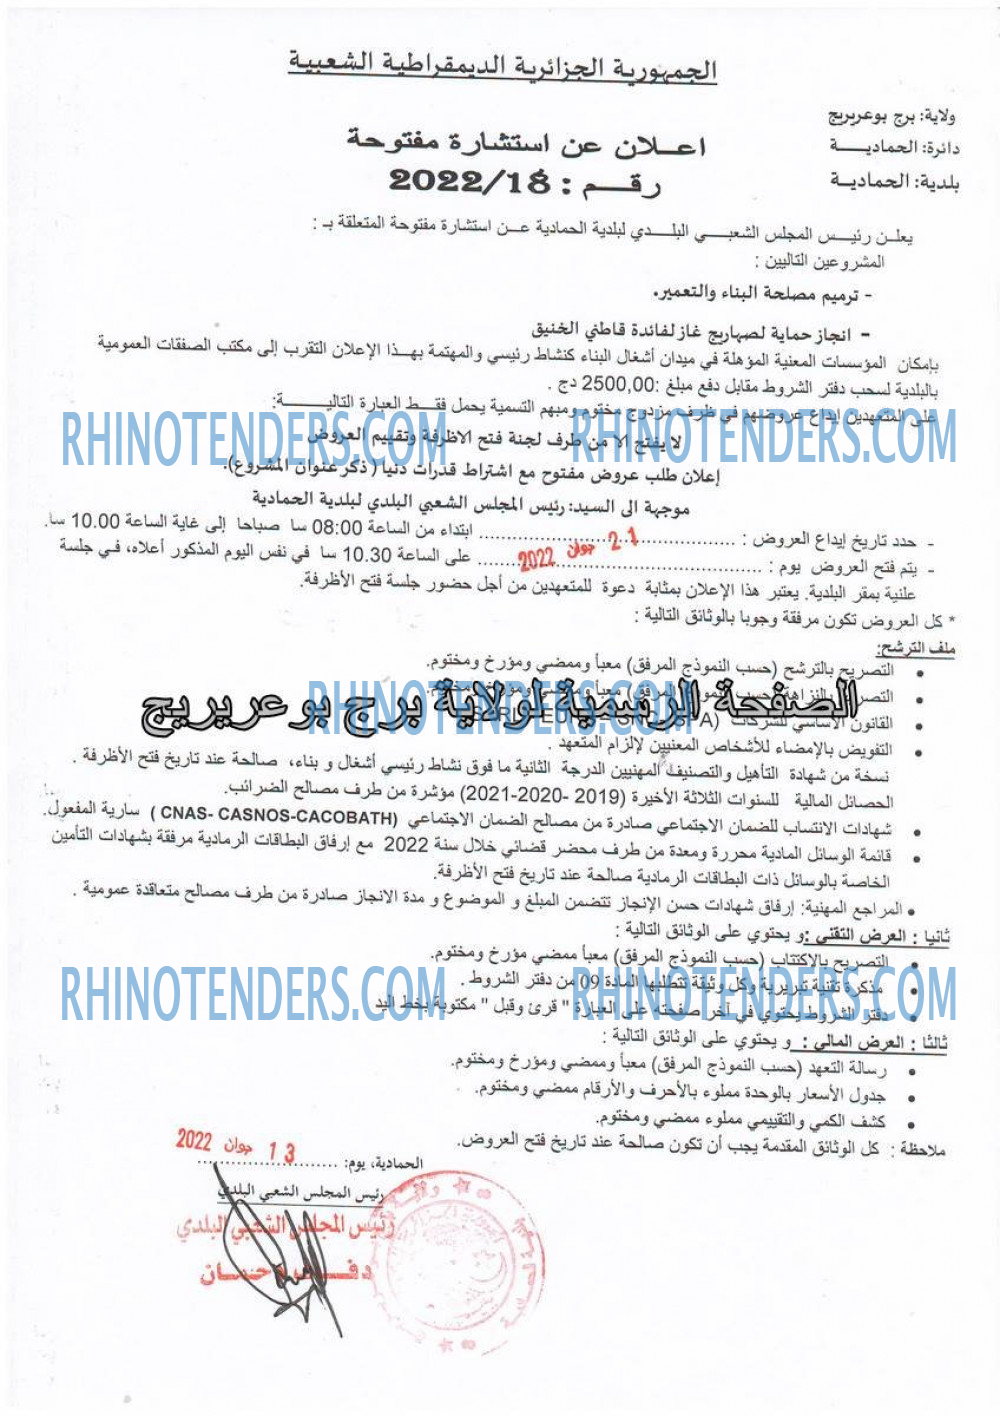 الجمهورية الجزائرية الديمقراطية الشعبية
ولاية: برج بوعريريج
دائرة: الحماديــــة
بلدية: الحمادية
اعــلان عن استشارة مفتوحة
رقـــم : 2022/18
يعلـن رئيــس المجلس الشعبــــي البلــدي لبلدية الحمادية عــن استشارة مفتوحة المتعلقة بـ :
المشروعين التاليين :
- ترميم مصلحة البناء والتعمير.
- انجاز حماية لصهاريج غاز لفائدة قاطني الخنيق
بإمكان المؤسسات المعنية المؤهلة في ميدان أشغال البناء كنشاط رئيسي والمهتمة بهــذا الإعلان التقرب إلى مكتب الصفقات العمومية
بالبلدية لسحب دفتر الشروط مقابل دفع مبلغ :2500,00 دج .
على المتعهدين إيداع عروضهم في ظرف مزدوج مختوم ومبهم التسمية يحمل فقــط العبارة التاليـــــة:
RHINOTENDERS.COM RHINOTENDERS.COM
لا يفتح الا من طرف لجنة فتح الاظرفة وتقييم العروض
إعلان طلب عروض مفتوح مع اشتراط قدرات دنيا ( ذكر عنوان المشروع).
موجهة الى السيد: رئيس المجلس الشعبي البلدي لبلدية الحمادية
- حدد تاريخ إيداع العروض : ........ 21 جوان 2022 ........ ابتداء من الساعة 08:00 سا صباحا إلى غاية الساعة 10.00 سا.
- يتم فتح العروض يوم : ................ على الساعة 10.30 سا في نفس اليوم المذكور أعلاه، فـي جلسة
علنية بمقر البلدية. يعتبر هذا الإعلان بمثابة دعوة للمتعهدين من أجل حضور جلسة فتح الأظرفة.
* كل العروض تكون مرفقة وجوبا بالوثائق التالية :
ملف الترشح:
• التصريح بالترشح (حسب النموذج المرفق) معبأ وممضي ومؤرخ ومختوم.
• التصريح بالنزاهة (حسب النموذج المرفق) معبأ وممضي ومؤرخ ومختوم.
RHINOTENDERS.COM
الصفحة الرسمية لولاية برج بوعريريج
• القانون الأساسي للشركات
• التفويض بالإمضاء للأشخاص المعنيين لإلزام المتعهد .
نسخة من شهادة التأهيل والتصنيف المهنيين الدرجة الثانية ما فوق نشاط رئيسي أشغال و بناء، صالحة عند تاريخ فتح الأظرفة .
الحصائل المالية للسنوات الثلاثة الأخيرة (2019 -2020-2021) مؤشرة من طرف مصالح الضرائب.
• شهادات الانتساب للضمان الاجتماعي صادرة من مصالح الضمان الاجتماعي (CNAS- CASNOS-CACOBATH ) سارية المفعول.
• قائمة الوسائل المادية محررة ومعدة من طرف محضر قضائي خلال سنة 2022 مع إرفاق البطاقات الرمادية مرفقة بشهادات التأمين
الخاصة بالوسائل ذات البطاقات الرمادية صالحة عند تاريخ فتح الأظرفة.
• المراجع المهنية: إرفاق شهادات حسن الإنجاز تتضمن المبلغ و الموضوع و مدة الانجاز صادرة من طرف مصالح متعاقدة عمومية .
ثانيا : العرض التقني : و يحتوي على الوثائق التالية :
• التصريح بالاكتتاب (حسب النموذج المرفق) معبأ ممضي مؤرخ ومختوم.
• مذكرة تقنية تبريرية وكل وثيقة تتطلبها المادة 09 من دفتر الشروط .
RHINOTENDERS.COM RHINOTENDERS.COM
• دفتر الشروط يحتوي في آخر صفحته على العبارة " قرئ وقبل " مكتوبة بخط اليد
ثالثا : العرض المالي : و يحتوي على الوثائق التالية :
• رسالة التعهد (حسب النموذج المرفق) معبأ وممضي ومؤرخ ومختوم.
• جدول الأسعار بالوحدة مملوء بالأحرف والأرقام ممضي ومختوم.
• كشف الكمي والتقييمي مملوء ممضي ومختوم.
ملاحظة : كل الوثائق المقدمة يجب أن تكون صالحة عند تاريخ فتح العروض.
الحمادية، يوم: 13 جوان 2022
رئيس المجلس الشعبي البلدي
رئيس المجلس الشعبي البلدي
RHINOTENDERS.COM